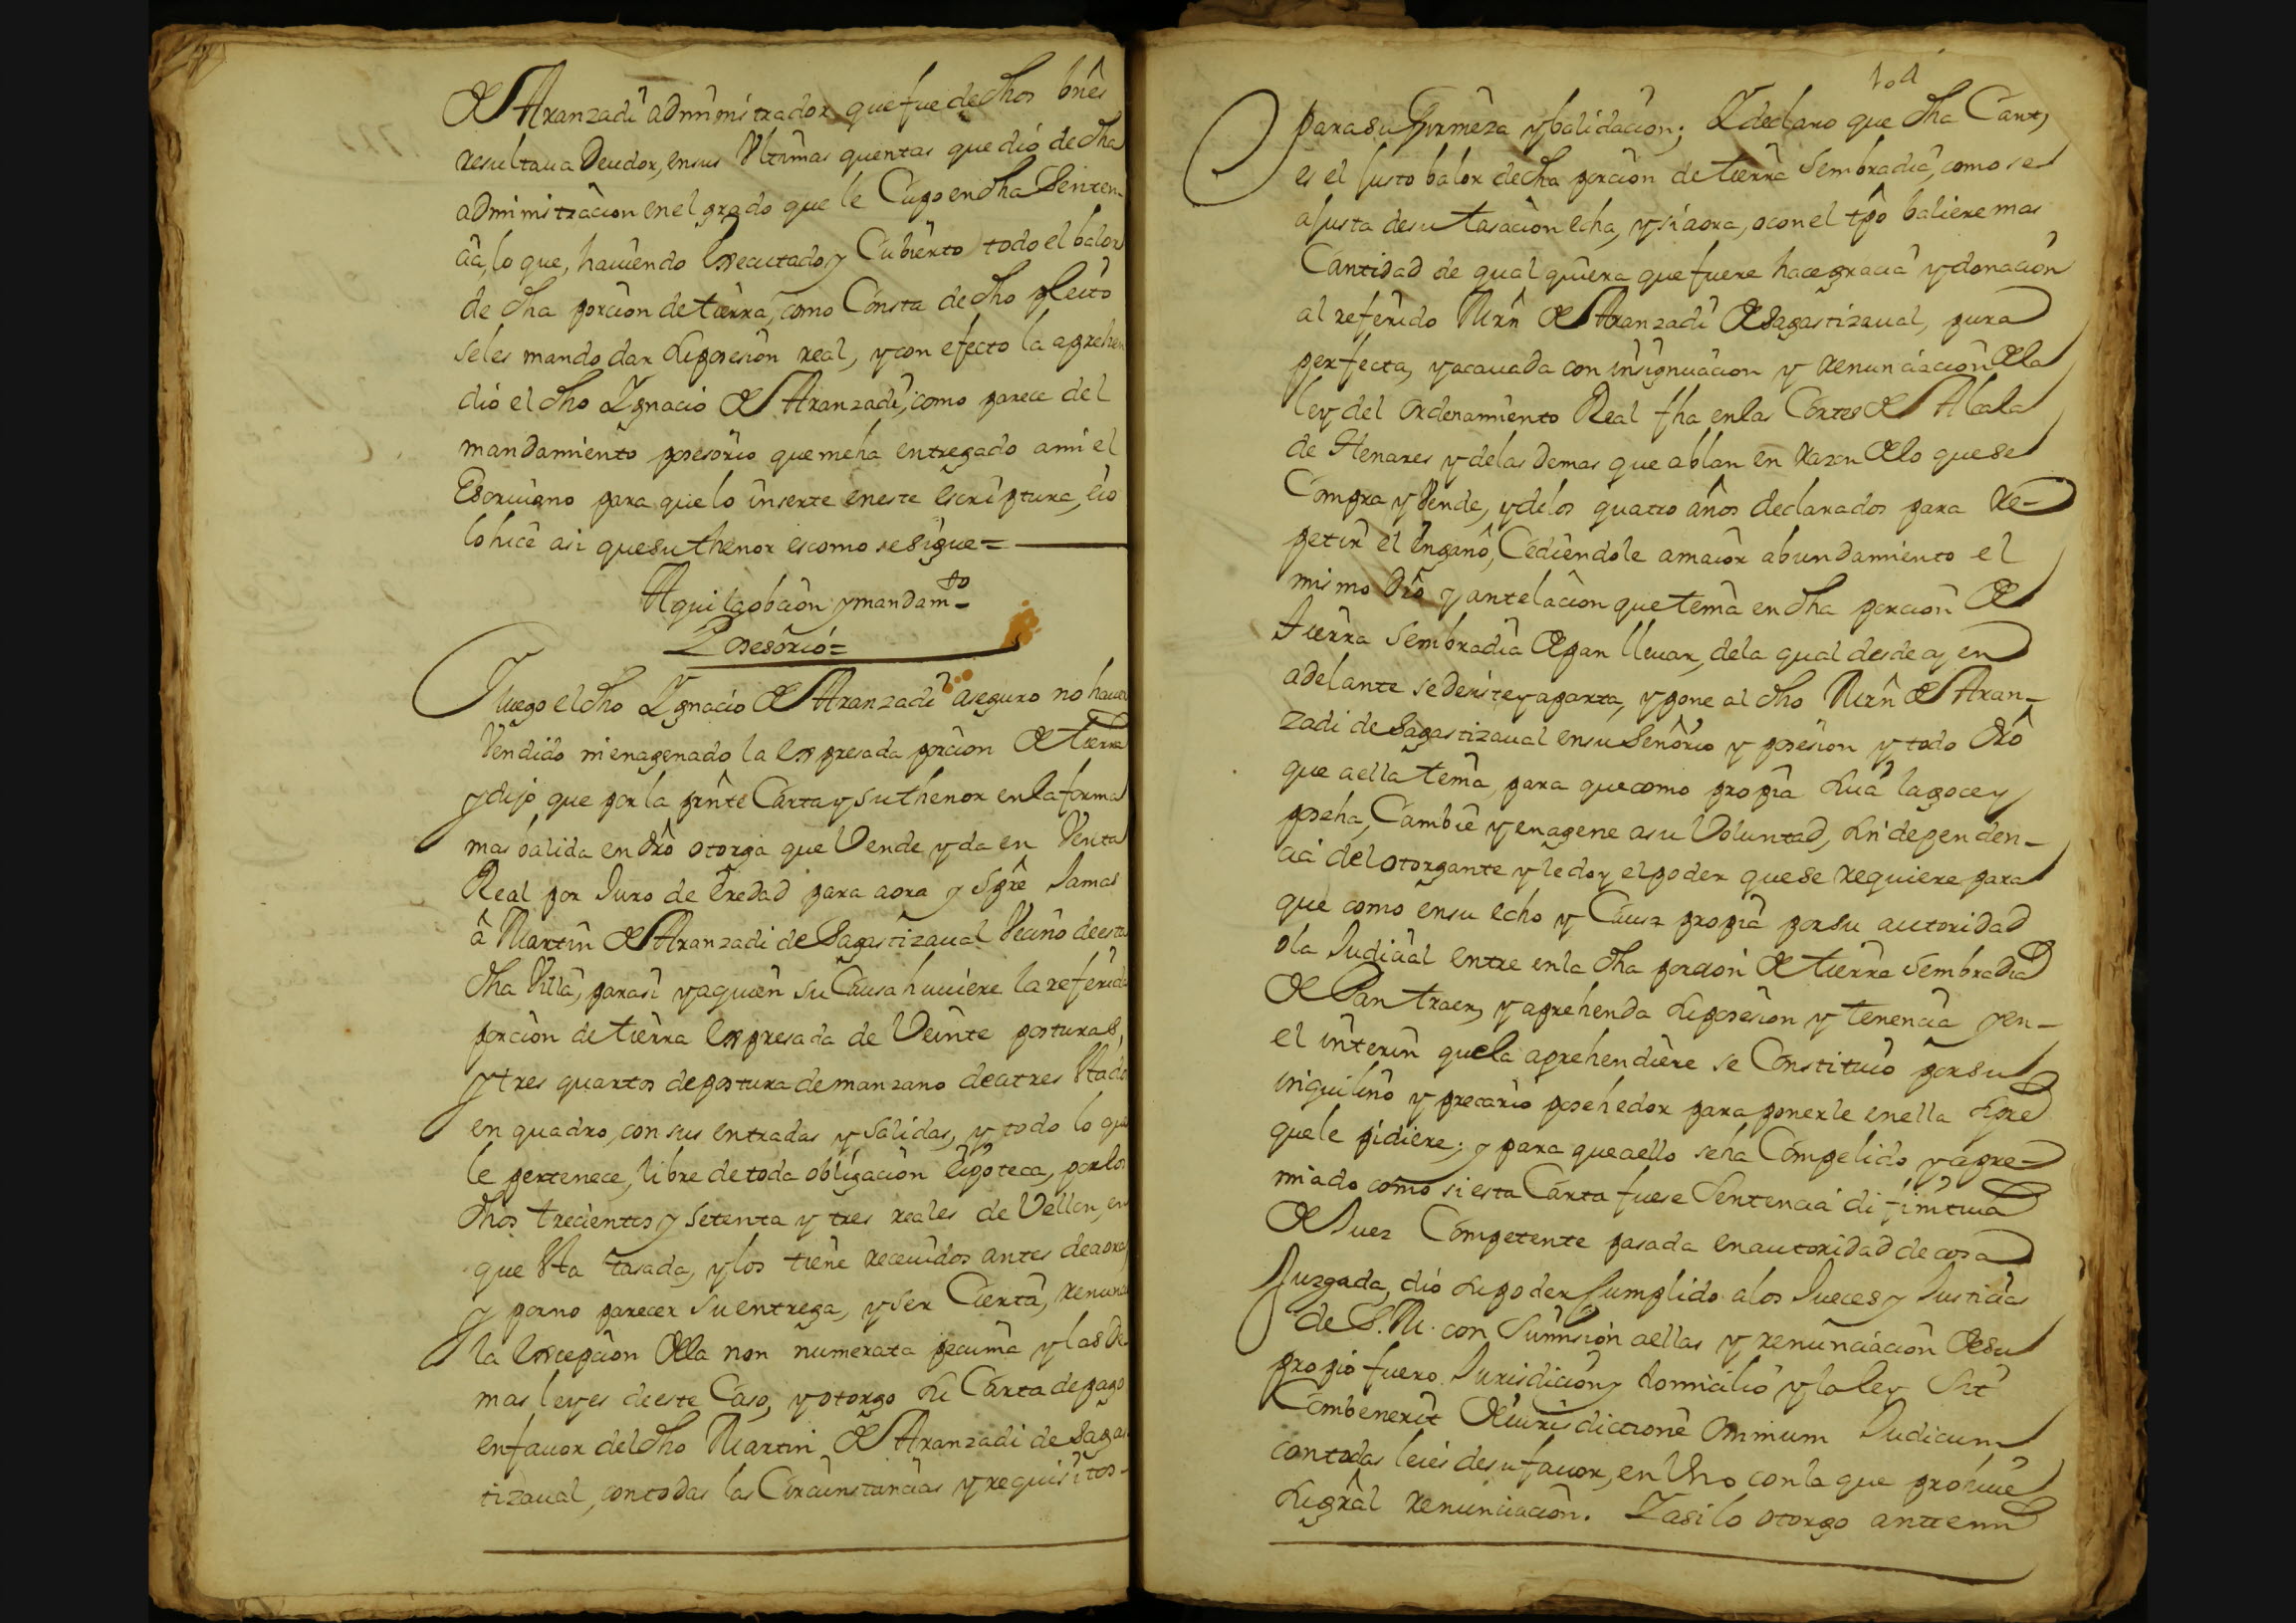 de Aranzadi administrador que fue de dhos bnes
resultaua Deudor, en sus Ultimas quentas que dió de dha
administracion en el grado que le Cupo en dha Senten-
cia, lo que, hauiendo executado y Cubierto todo el balor
de dha porcion de tierra, como Consta de dho pleito
seles mando dar la posesion real, y con efecto la aprehen
dió el dho Ygnacio de Aranzadi, como parece del
mandamiento posesorio que me ha entregado a mi el
Escriuano para que lo inserte en esta escriptura, eio
lo hice asi que su thenor es como se sigue =
Aqui la obcion y mandamto
Posesorio =
Luego el dho Ygnacio de Aranzadi aseguro no hauer
Vendido ni enagenado la expresada porcion de tierra
y dijo que por la prnte Carta y su thenor en la forma
mas balida en dro otorga que Vende y da en Venta
Real por Juro de Eredad para aora y Spre Jamas
â Martin de Aranzadi de Sagastizaual Vecino de esta
dha Villa, para si y a quien su Causa huuiere la referida
porcion de tierra expresada de Veinte posturas,
y tres quartos de postura de manzano de a tres Stados
en quadro, con sus entradas y salidas, y todo lo que
le pertenece, libre de toda obligacion eipoteca, por los
dhos trecientos y setenta y tres reales de Vellon, en
que Sta tasada, y los tiene receuidos antes de aora
y por no parecer su entrega, y ser Cierta, renuncia
la excepcion dela non numerata pecunia y las De
mas leyes de este Caso, y otorgo la Carta de pago
en fauor del dho Martin de Aranzadi de Sagas
tizaual, con todas las Circunstancias y requisitos
para su firmeza y balidacion; Y declaro que dha Cant,
es el Justo balor de dha porcion de tierra Sembradia, como se
ajusta de su tasacion echa, y si aora, o con el tpo baliere mas
Cantidad de qual quiera que fuere hace gracia y donacion
al referido Mrn de Aranzadi de Sagastizaual, pura
perfecta, y acauada con insignuacion y renunciacion dela
ley del ordenamiento Real fha en las Cortes de Alcala
de Henares y delas demas que ablan en razon delo que se
Compra y Vende, y delos quatro años declarados para Re-
petir el engaño, Cediendole a maior abundamiento el
mismo dro y antelacion que tenia en dha porcion de
tierra Sembradia de pan lleuar, dela qual desde oy en
adelante se desiste y aparta, y pone al dho Mrn de Aran-
zadi de Sagastizaual en su Señorio y posesion y todo dro
que a ella tenia, para que como propia sua la goce y
poseha, Cambie y enagene a su Voluntad, Independen-
cia del otorgante y le da el poder que se requiere para
que como en su echo y Causa propia por su autoridad
o la Judicial entre en la dha porcion de tierra Sembradia
de Pan traer, y aprehenda la posesion y tenencia y en-
el interin que la aprehendiere se Constituio por su
inquilino y precario posehedor para ponerle en ella spre
que le pidiere; y para que a ello seha Compelido y apre-
miado como si esta Carta fuese Sentencia difinitiua
de Juez Competente pasada en autoridad de cosa
Juzgada, dió su poder Cumplido a los Jueces y Justicias
de S. M. con Sumision a ellas y renunciacion de su
propio fuero Jurisdicion y domicilio y la ley Sit
Combenerit de iurisdictione omnium Judicum
con todas leies de su fauor, en Uno con la que prohiue
la gral renunciacion. Y asi lo otorgo ante mi